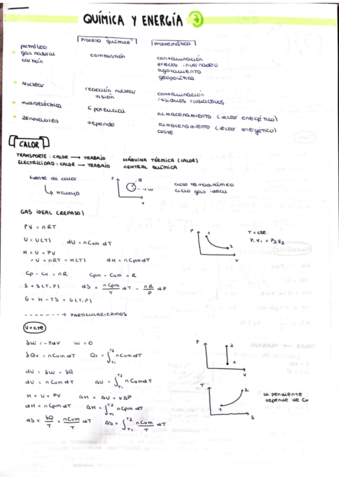 QUÍMICA Y ENERGÍA
proceso químico
problemática
petróleo
gas natural
carbón
combustión
contaminación
efecto invernadero
agotamiento
geopolítica
nuclear
reacción nuclear
fisión
contaminación
residuos radiactivos
hidroeléctrica
E potencial
almacenamiento (vector energético)
renovables
depende
almacenamiento (vector energético)
coste
CALOR
TRANSPORTE: CALOR → TRABAJO
MÁQUINA TÉRMICA (CALOR)
ELECTRICIDAD: CALOR → TRABAJO
CENTRAL ELÉCTRICA
fuente de calor
↳ trabajo
P
W
V
ciclo termodinámico
ciclo gas ideal
GAS IDEAL (REPASO)
PV = nRT
U = U(T) dU = nCvm dT
H = U + PV
= U + nRT = H(T) dH = nCpm dT
Cp - Cv = nR Cpm - Cvm = R
S = S(T,P) dS = nCpm/T dT - nR/P dP
G = H - TS = G(T,P)
P
1
2
V
T = cte
P1V1 = P2V2
→ PARTICULARICEMOS
V = cte
δW = -PdV W = 0
δQv = nCvm dT Qv = ∫T1T2 nCvm dT
dU = δW + δQ
dU = nCvm dT ΔU = ∫T1T2 nCvm dT
H = U + PV ΔH = ΔU + VΔP
dH = nCpm dT ΔH = ∫T1T2 nCpm dT
dS = δQ/T = nCvm/T dT ΔS = ∫T1T2 nCvm/T dT
P
2
1
V
T
2
1
S
la pendiente
depende de Cv